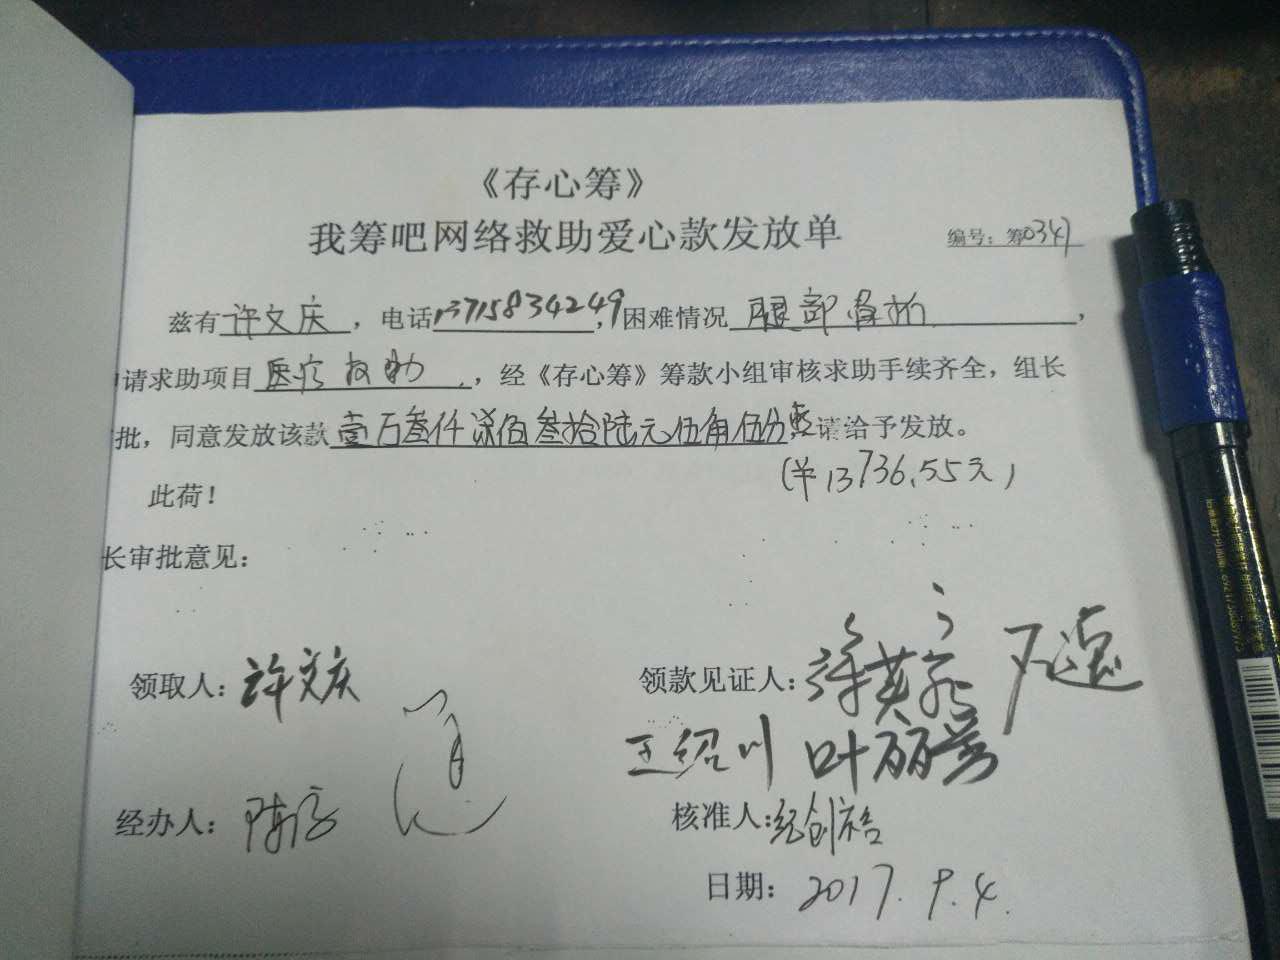 《存心筹》
我筹吧网络救助爱心款发放单
编号：筹0347
兹有许文庆，电话13715834249，困难情况腿部骨折，
请求助项目医疗救助，经《存心筹》筹款小组审核求助手续齐全，组长
批，同意发放该款壹万叁仟柒佰叁拾陆元伍角伍分整请给予发放。
(￥13736.55元)
此荷！
长审批意见：
领取人：许文庆
领款见证人：
王绍川 叶丽芳
经办人：
核准人：纪创裕
日期：2017.9.4.